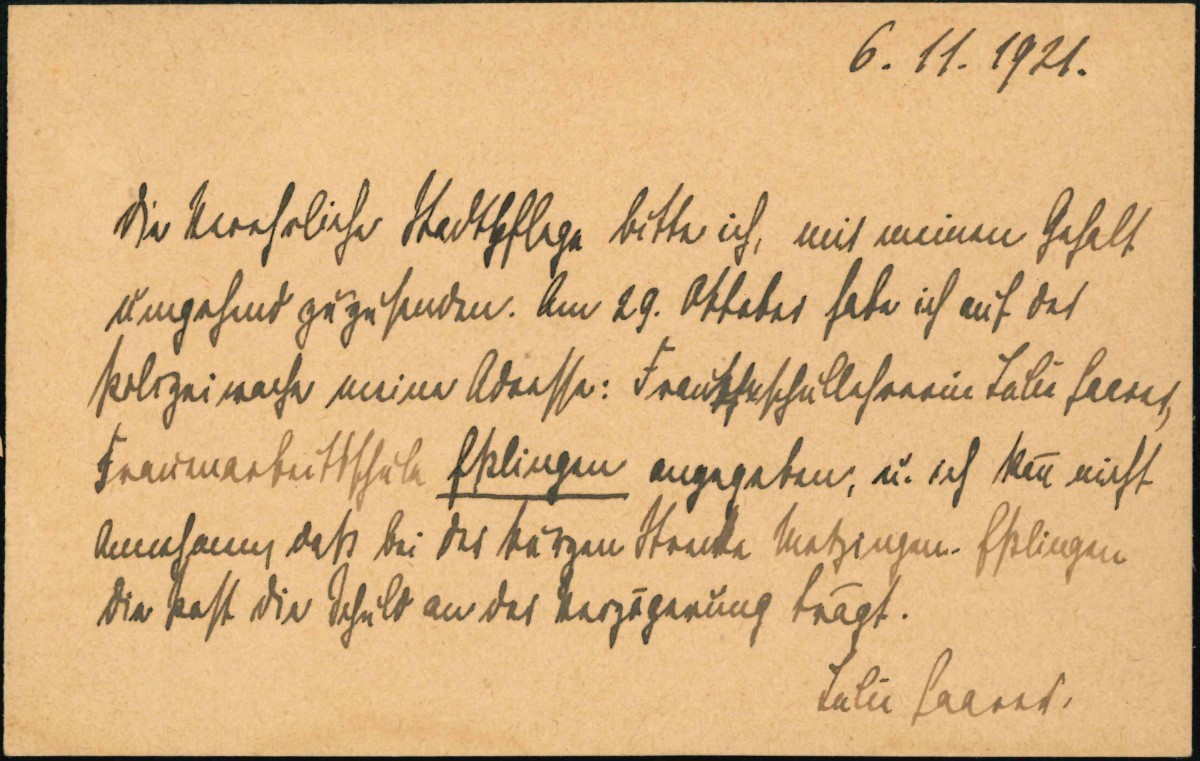 6. 11. 1921.
Die Verehrliche Stadtpflege bitte ich, mir meinen Gehalt
umgehend zuzusenden. Am 29. Oktober habe ich auf der
Polizeiwache meine Adresse: Julie Haarer,
Frauenarbeitsschule Eßlingen angegeben, u. ich kan̄ nicht
annehmen, daß bei der kurzen Strecke Metzingen-Eßlingen
die Post die Schuld an der Verzögerung trägt.
Julie Haarer.